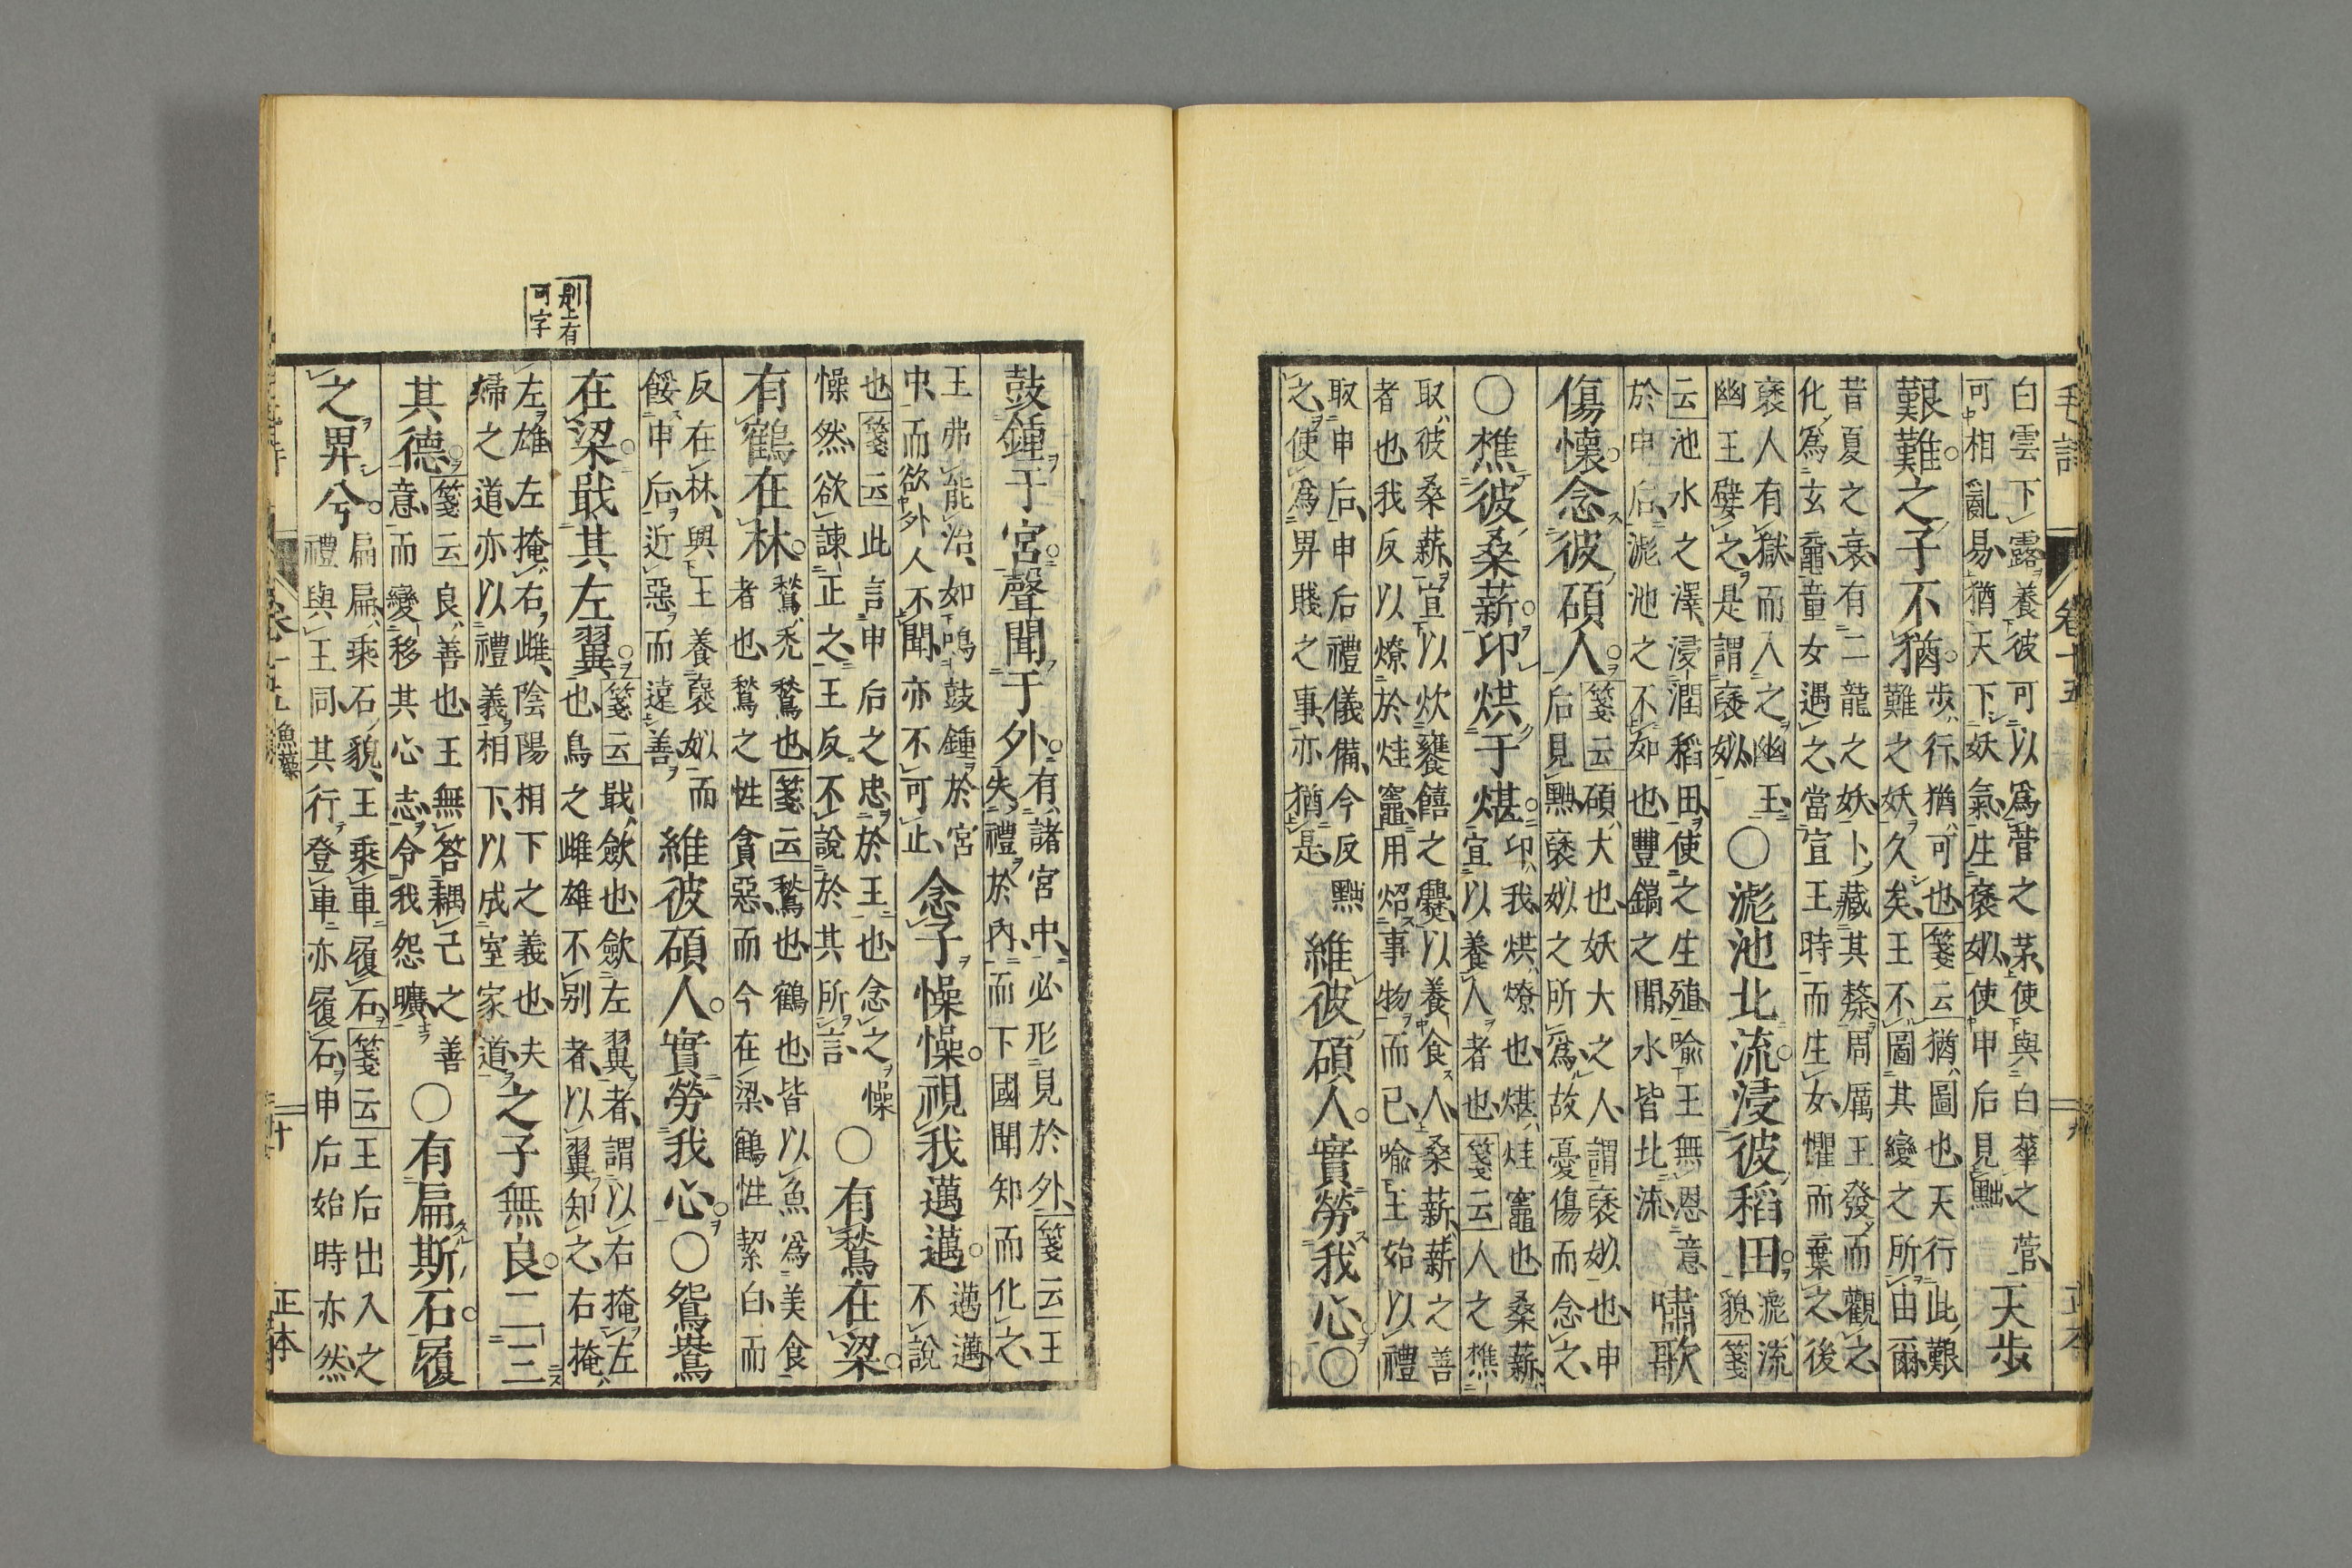 毛詩 卷十五 十九 正本
白雲下露養彼可以爲菅之茅使與白華之菅
可相亂易猶天下妖氣生褒姒使申后見黜
天步
艱難之子不猶
步行猶可也箋云猶圖也天行此艱
難之妖久矣王不圖其變之所由爾
昔夏之衰有二龍之妖卜藏其漦周厲王發而觀之
化爲玄黿童女遇之當宣王時而生女懼而棄之後
褒人有獄而入之幽王
幽王嬖之是謂褒姒
○滮池北流浸彼稻田
滮流
貌箋
云池水之澤浸潤稻田使之生殖喻王無恩意
於申后滮池之不如也豐鎬之閒水皆北流
嘯歌
傷懷念彼碩人
箋云碩大也妖大之人謂褒姒也申
后見黜褒姒之所爲故憂傷而念之
○樵彼桑薪卬烘于煁
卬我烘燎也煁烓竈也桑薪
宜以養人者也箋云人之樵
取彼桑薪宜以炊饔饎之爨以養食人桑薪薪之善
者也我反以燎於烓竈用炤事物而已喻王始以禮
取申后申后禮儀備今反黜
之使爲卑賤之事亦猶是
維彼碩人實勞我心○
鼓鍾于宮聲聞于外
有諸宮中必形見於外箋云王
失禮於內而下國聞知而化之
王弗能治如鳴鼓鍾於宮
中而欲外人不聞亦不可止
念子懆懆視我邁邁
邁邁
不說
也箋云此言申后之忠於王也念之懆
懆然欲諫正之王反不說於其所言
○有鶖在梁
有鶴在林
鶖禿鶖也箋云鶖也鶴也皆以魚爲美食
者也鶖之性貪惡而今在梁鶴性絜白而
反在林與王養褒姒而
餒申后近惡而遠善
維彼碩人實勞我心○鴛鴦
別上有
可字
在梁戢其左翼
箋云戢斂也斂左翼者謂以右掩左
也鳥之雌雄不別者以翼知之右掩
左雄左掩右雌陰陽相下之義也夫
婦之道亦以禮義相下以成室家道
之子無良二三
其德
箋云良善也王無答耦己之善
意而變移其心志令我怨曠
○有扁斯石履
之卑兮
扁扁乘石貌王乘車履石箋云王后出入之
禮與王同其行登車亦履石申后始時亦然
卷十五 魚藻 二十 正本